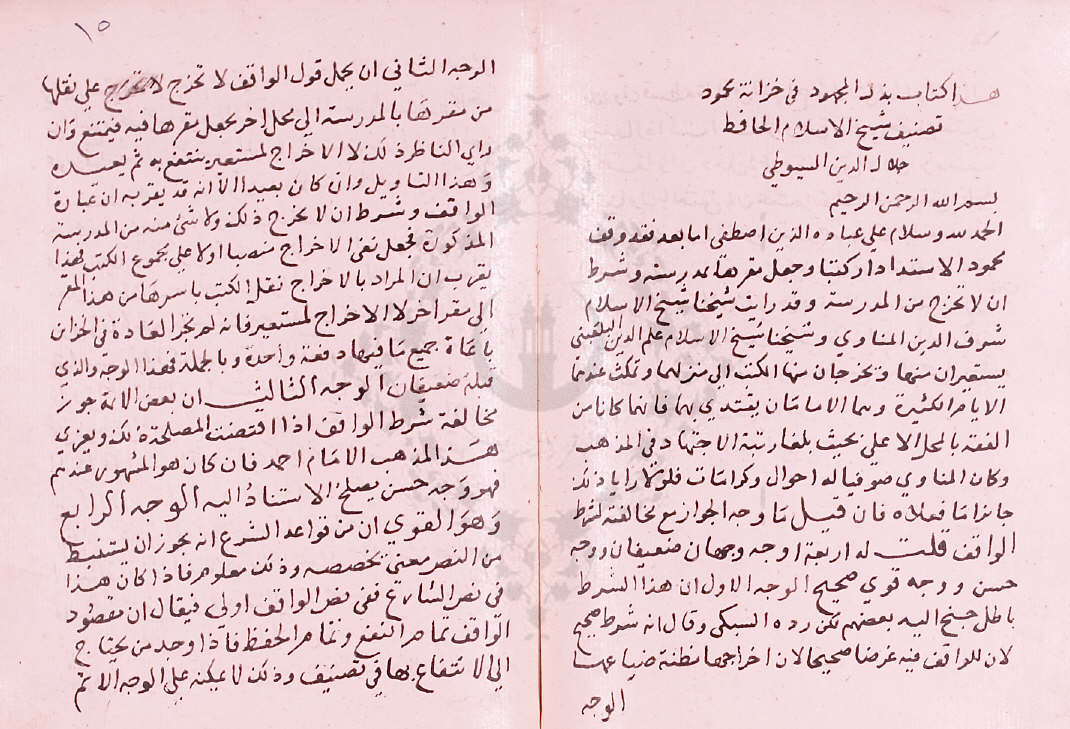 هذا كتاب بذل المجهود في خزانة محمود
تصنيف شيخ الاسلام الحافظ
جلال الدين السيوطي
بسم الله الرحمن الرحيم
الحمد لله وسلام على عباده الذين اصطفى اما بعد فقد وقف
محمود الاستدادار كتبا وجعل مقرها بمدرسته وشرط
ان لا تخرج من المدرسة وقد رايت شيخنا شيخ الاسلام
شرف الدين المناوي وشيخنا شيخ الاسلام علم الدين البلقيني
يستعيران منها وتخرجان منها الكتب الى منزلهما وتمكث عندهما
الايام الكثيرة وهما الامامان يقتدي بهما فانهما كانا من
الفقه بالمحل الاعلى بحيث بلغا رتبة الاجتهاد في المذهب
وكان المناوي صوفيا له احوال وكرامات فلولا رايا ذلك
جائزا ما فعلاه فان قيل ما وجه الجواز مع مخالفة لشرط
الواقف قلت له اربعة اوجه وجهان ضعيفان ووجه
حسن ووجه قوي صحيح الوجه الاول ان هذا الشرط
باطل جنح اليه بعضهم لكن رده السبكي وقال انه شرط صحيح
لان للواقف فيه غرضا صحيحا لان اخراجها مظنة ضياعها
الوجه
١٥
الوجه الثاني ان يحمل قول الواقف لا تخرج لا تخرج على نقلها
من مقرها بالمدرسة الى محل اخر يجعل مقرها فيه فيمتنع وان
راي الناظر ذلك لا الاخراج لمستعير ينتفع به ثم يعيده
وهذا التاويل وان كان بعيدا الا انه قد يقربه ان عبارة
الواقف وشرط ان لا يخرج ذلك ولا شئ منه من المدرسة
المذكورة فجعل نفى الاخراج منصبا اولا على مجموع الكتب فهذا
يقرب ان المراد بالاخراج نقل الكتب باسرها من هذا المقر
الى مقر اخر لا الاخراج لمستعير فانه لم تجر العادة في الخزائن
باعارة جميع ما فيها دفعة واحدة وبالجملة فهذا الوجه والذي
قبله ضعيفان الوجه الثالث ان بعض الائمة جوز
مخالفة شرط الواقف اذا اقتضت المصلحة ذلك ويعزي
هذا المذهب الامام احمد فان كان هو المشهور عندهم
فهو وجه حسن يصلح الاستناد اليه الوجه الرابع
وهو القوي ان من قواعد الشرع انه يجوز ان يستنبط
من النص معنى يخصصه وذلك معلوم فاذا كان هذا
في نص الشارع ففي نص الواقف اولى فيقال ان مقصود
الواقف تمام النفع وتمام الحفظ فاذا وجد من يحتاج
الى الانتفاع بها في تصنيف وذلك لا يمكنه على الوجه الاتم